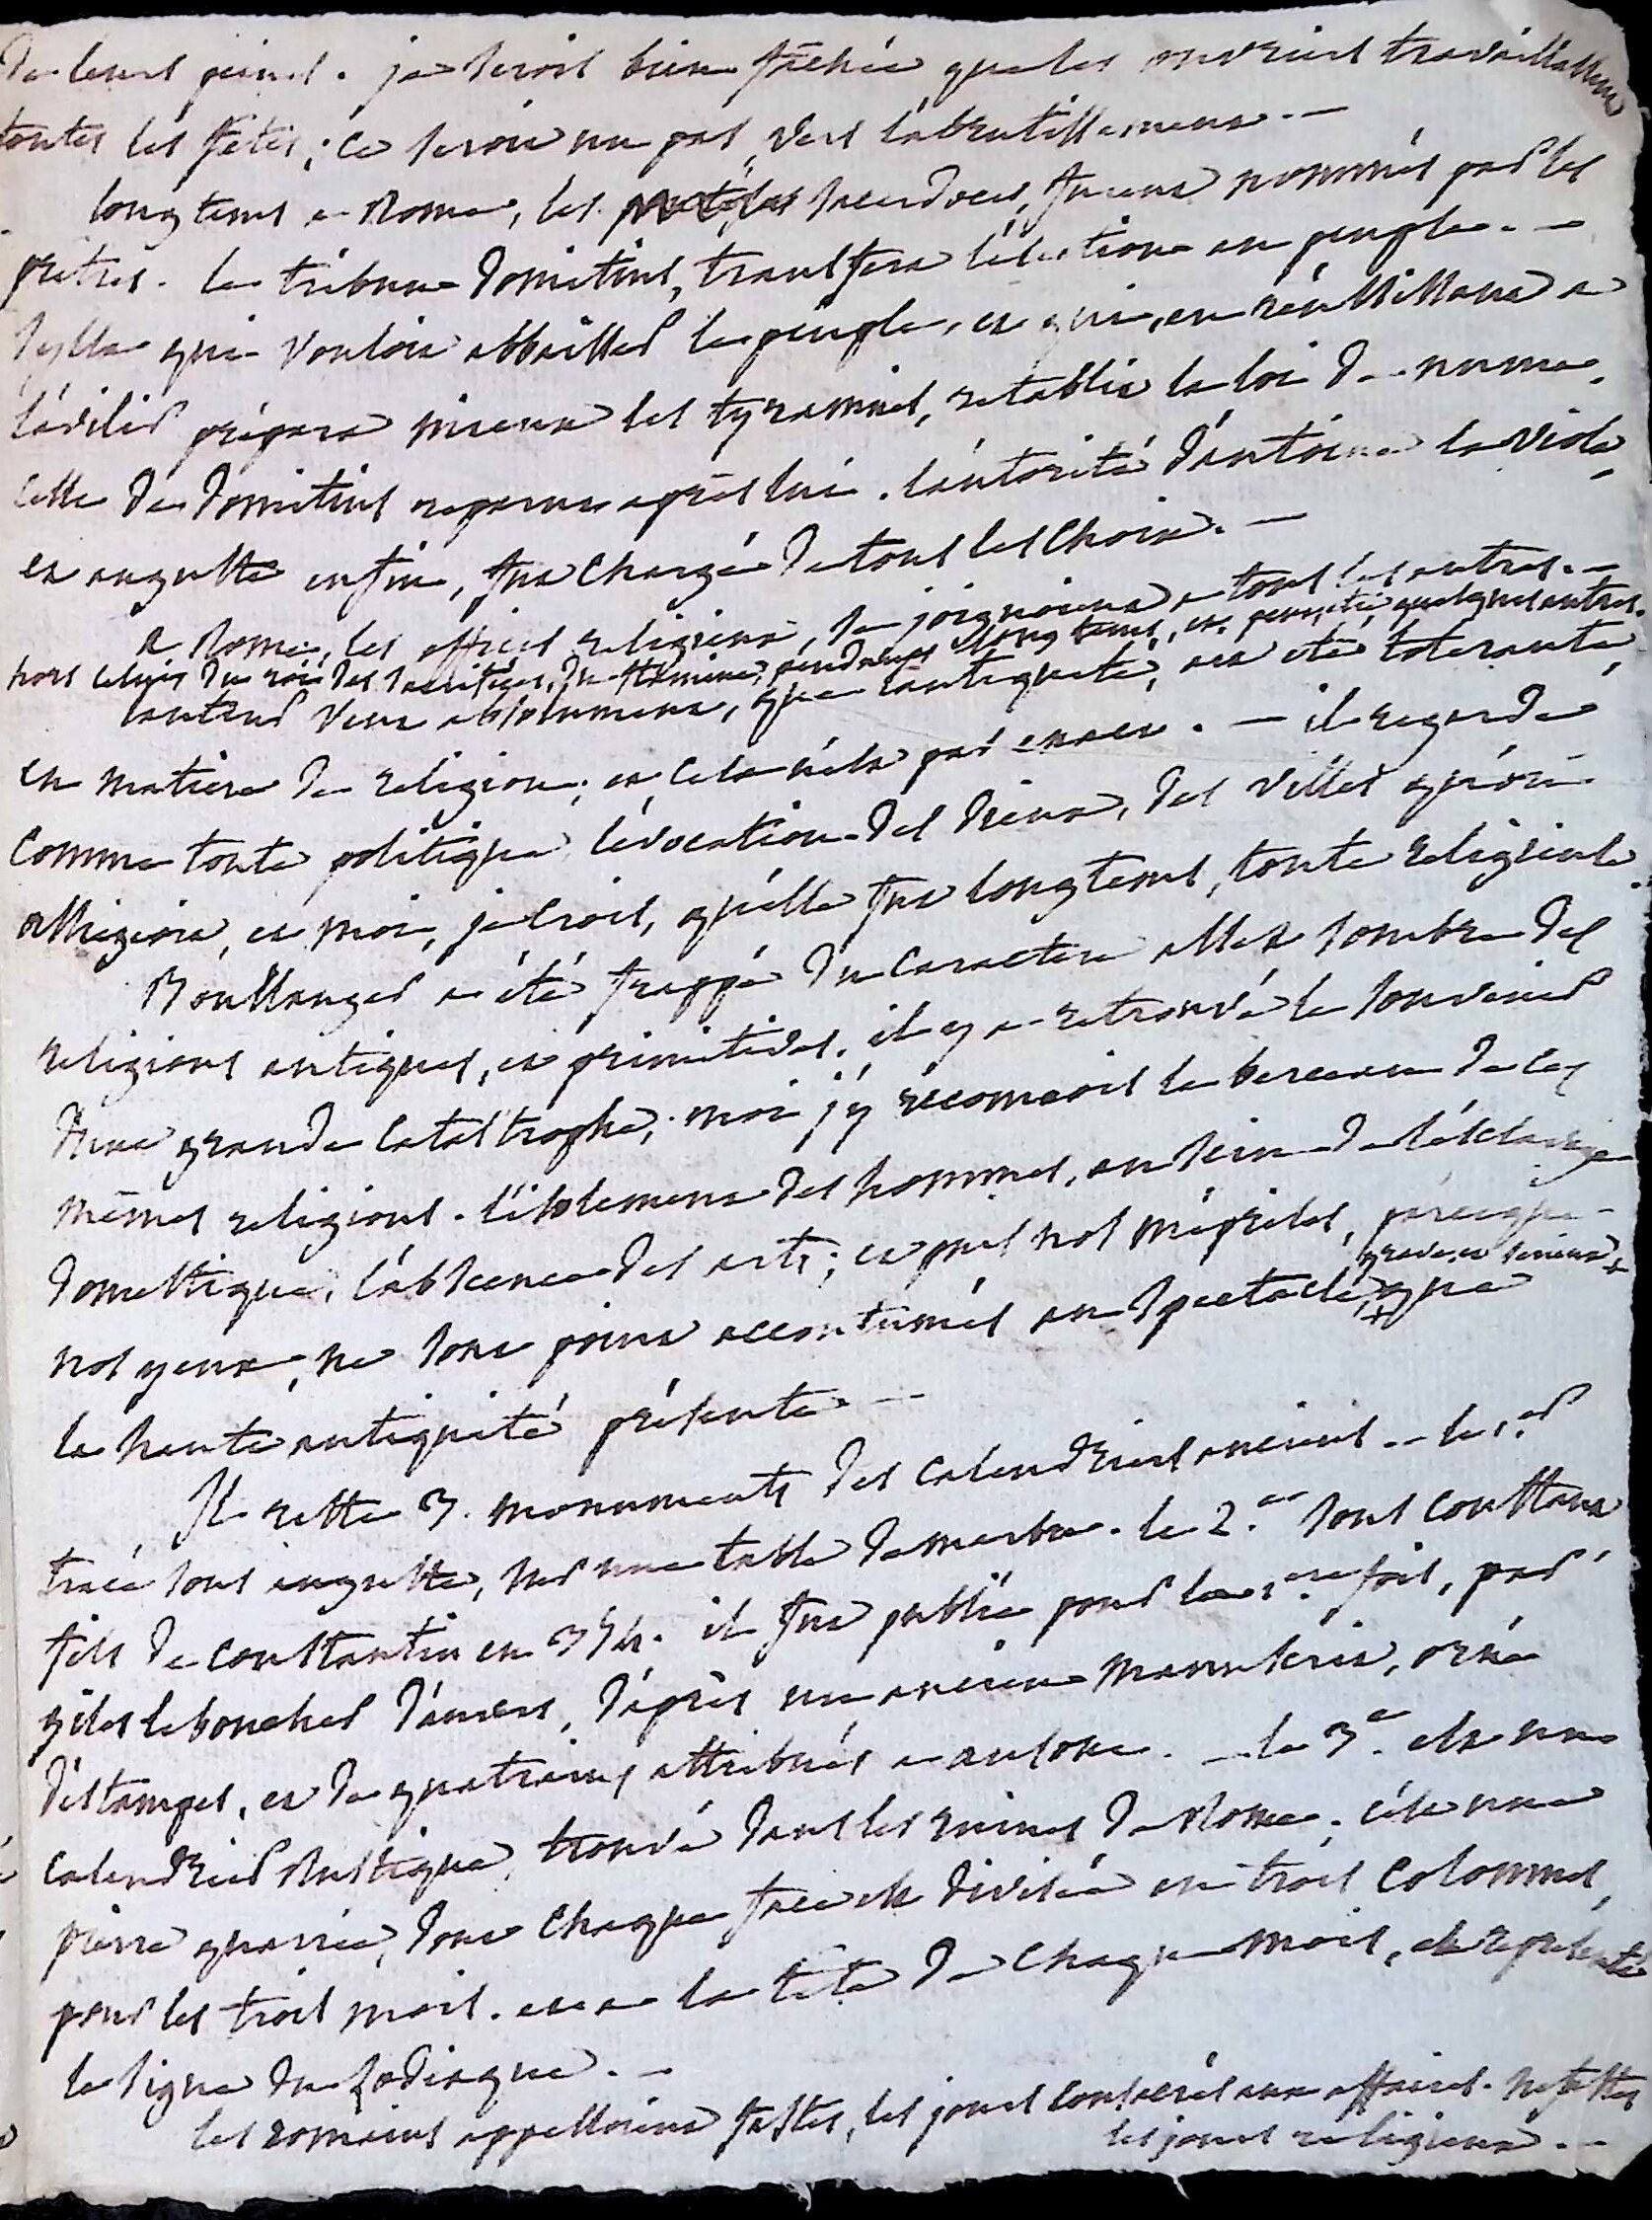 de leurs peines. je serois bien fâchée que les ouvriers travaillassent
toutes les fêtes; ce seroit un pas, vers l'abrutissement. —
longtems a Rome, les sacerdoces, furent nommés par les
prêtres. le tribun domitius, transfera l'élection au peuple. —
Sylla qui vouloit abbaisser le peuple, et qui, en réussissant a
l'avilir prépara mieux les tyrannies, rétablit la loi de numa.
celle de domitius reparut après lui. l'autorité d'antoine la viola,
et auguste enfin, fut chargé de tous les choix. —
a Rome, les offices religieux, se joignoient a tous les autres. —
hors celui du roi des sacrifices, du flamine, pendant long tems, et peut être quelques autres.
l'auteur veut absolument, que l'antiquité, ait été tolerante,
en matiere de religion; et cela n'est pas exact. — il regarde
comme toute politique l'évocation des dieux, des villes qu'on
assiegeoit, et moi, je crois, qu'elle fut longtems, toute religieuse.
Boullanger a été frappé du caractere assez sombre des
religions antiques, et primitives. il y a retrouvé le souvenir
d'une grande catastrophe; moi j'y reconnois le berceau de ces
mêmes religions. l'isolement des hommes, au sein de l'esclavage
domestique, l'absence des arts; et puis nos méprises, parceque
nos yeux, ne sont point accoutumés au spectacle, + que
grave, et serieux +
la haute antiquité présente. —
Il reste 3. monuments des calendriers anciens. — le 1.er
tracé sous auguste, sur une table de marbre. le 2.e sous constans
fils de constantin en 354. il fut publié pour la 1.ere fois, par
giles le boucher d'anvers, d'après un ancien manuscrit, orné
d'estampes, et de quatrains attribués a ausone. — le 3.e est un
calendrier Rustique, trouvé dans les ruines de Rome. c'est une
pierre quarrée, dont chaque face est divisée en trois colonnes,
pour les trois mois. et a la tête de chaque mois, est représenté
le signe du zodiaque. —
les romains appelloient fastes, les jours consacrés aux affaires. nefastes
les jours religieux. —